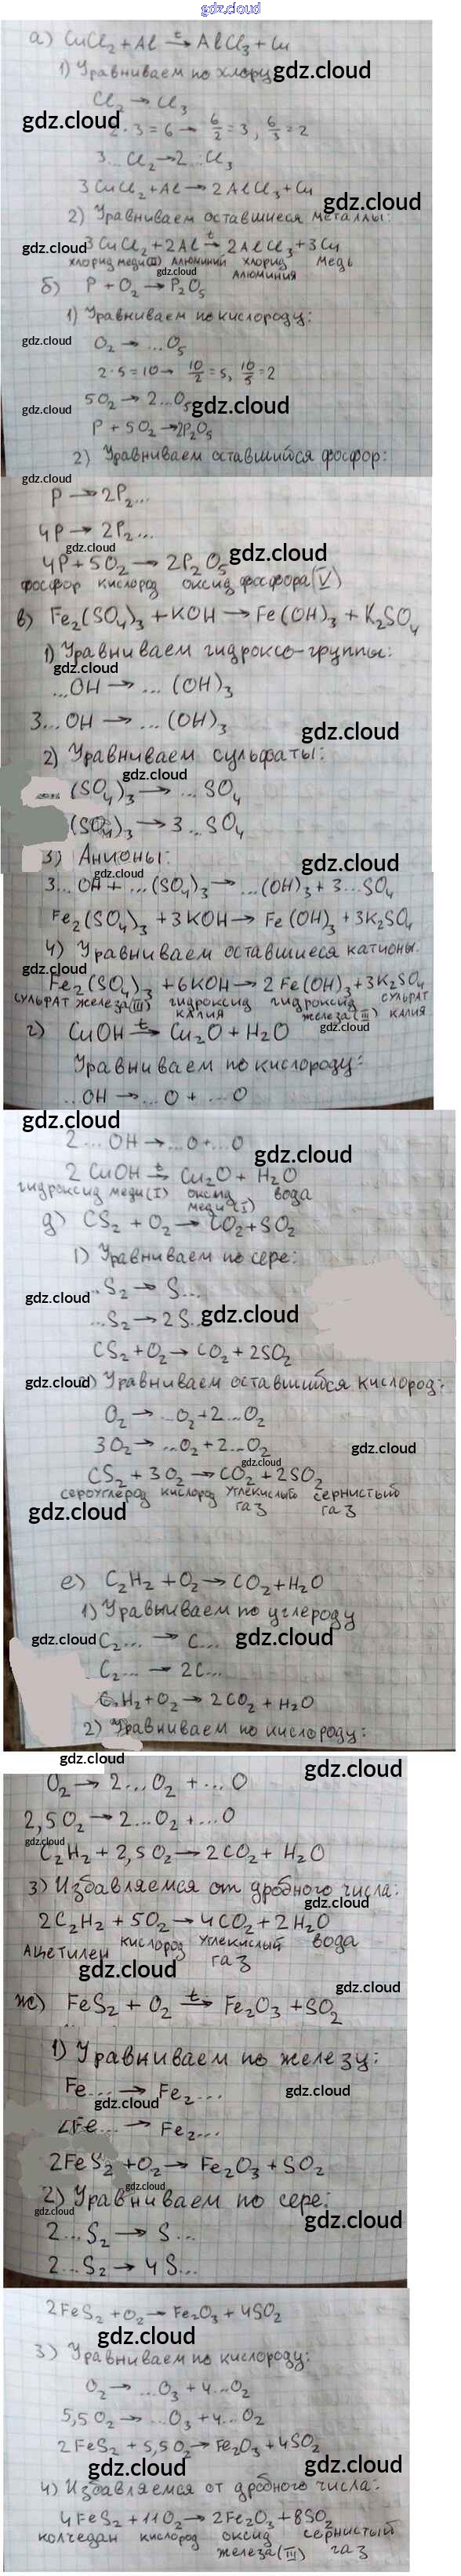 gdz.cloud
а) CuCl₂ + Al →ᵗ AlCl₃ + Cu
1) Уравниваем по хлору gdz.cloud
Cl₂ → Cl₃
gdz.cloud
2·3 = 6 → 6/2 = 3, 6/3 = 2
3...Cl₂ → 2...Cl₃
3CuCl₂ + Al → 2AlCl₃ + Cu
gdz.cloud
2) Уравниваем оставшиеся металлы:
gdz.cloud 3CuCl₂ + 2Al →ᵗ 2AlCl₃ + 3Cu
хлорид меди(II) алюминий хлорид алюминия медь
gdz.cloud
б) P + O₂ → P₂O₅
1) Уравниваем по кислороду:
gdz.cloud O₂ → ...O₅
2·5 = 10 → 10/2 = 5, 10/5 = 2
gdz.cloud 5O₂ → 2...O₅ gdz.cloud
P + 5O₂ → 2P₂O₅
2) Уравниваем оставшийся фосфор:
gdz.cloud
P → 2P₂...
4P → 2P₂...
gdz.cloud
4P + 5O₂ → 2P₂O₅ gdz.cloud
фосфор кислород оксид фосфора(V)
в) Fe₂(SO₄)₃ + KOH → Fe(OH)₃ + K₂SO₄
1) Уравниваем гидроксо-группы:
gdz.cloud
...OH → ...(OH)₃
3...OH → ...(OH)₃
gdz.cloud
2) Уравниваем сульфаты:
gdz.cloud
...(SO₄)₃ → ...SO₄
(SO₄)₃ → 3...SO₄
3) Анионы:
gdz.cloud
gdz.cloud
3...OH + ...(SO₄)₃ → ...(OH)₃ + 3...SO₄
Fe₂(SO₄)₃ + 3KOH → Fe(OH)₃ + 3K₂SO₄
4) Уравниваем оставшиеся катионы.
gdz.cloud
Fe₂(SO₄)₃ + 6KOH → 2Fe(OH)₃ + 3K₂SO₄
сульфат железа(III) гидроксид калия гидроксид железа(III) сульфат калия
gdz.cloud
г) CuOH →ᵗ Cu₂O + H₂O
Уравниваем по кислороду:
...OH → ...O + ...O
gdz.cloud
2...OH → ...O + ...O
gdz.cloud
2CuOH →ᵗ Cu₂O + H₂O
гидроксид меди(I) оксид меди(I) вода
д) CS₂ + O₂ → CO₂ + SO₂
1) Уравниваем по сере:
gdz.cloud ...S₂ → S...
...S₂ → 2S... gdz.cloud
CS₂ + O₂ → CO₂ + 2SO₂
gdz.cloud 2) Уравниваем оставшийся кислород:
O₂ → ...O₂ + 2...O₂
3O₂ → ...O₂ + 2...O₂ gdz.cloud
gdz.cloud
CS₂ + 3O₂ → CO₂ + 2SO₂
сероуглерод кислород углекислый газ сернистый газ
gdz.cloud
е) C₂H₂ + O₂ → CO₂ + H₂O
1) Уравниваем по углероду
gdz.cloud C₂... → C... gdz.cloud
C₂... → 2C...
C₂H₂ + O₂ → 2CO₂ + H₂O
2) Уравниваем по кислороду:
gdz.cloud gdz.cloud
O₂ → 2...O₂ + ...O
2,5O₂ → 2...O₂ + ...O
gdz.cloud
C₂H₂ + 2,5O₂ → 2CO₂ + H₂O
3) Избавляемся от дробного числа:
gdz.cloud
2C₂H₂ + 5O₂ → 4CO₂ + 2H₂O
Ацетилен кислород углекислый газ вода
gdz.cloud
gdz.cloud
ж) FeS₂ + O₂ →ᵗ Fe₂O₃ + SO₂
1) Уравниваем по железу:
Fe... → Fe₂... gdz.cloud
gdz.cloud
2Fe... → Fe₂...
2FeS₂ + O₂ → Fe₂O₃ + SO₂
gdz.cloud
2) Уравниваем по сере:
gdz.cloud gdz.cloud
2...S₂ → S...
2...S₂ → 4S...
2FeS₂ + O₂ → Fe₂O₃ + 4SO₂
gdz.cloud
3) Уравниваем по кислороду:
O₂ → ...O₃ + 4...O₂
5,5O₂ → ...O₃ + 4...O₂
2FeS₂ + 5,5O₂ → Fe₂O₃ + 4SO₂
gdz.cloud gdz.cloud
4) Избавляемся от дробного числа:
4FeS₂ + 11O₂ → 2Fe₂O₃ + 8SO₂
колчедан кислород оксид железа(III) сернистый газ
gdz.cloud